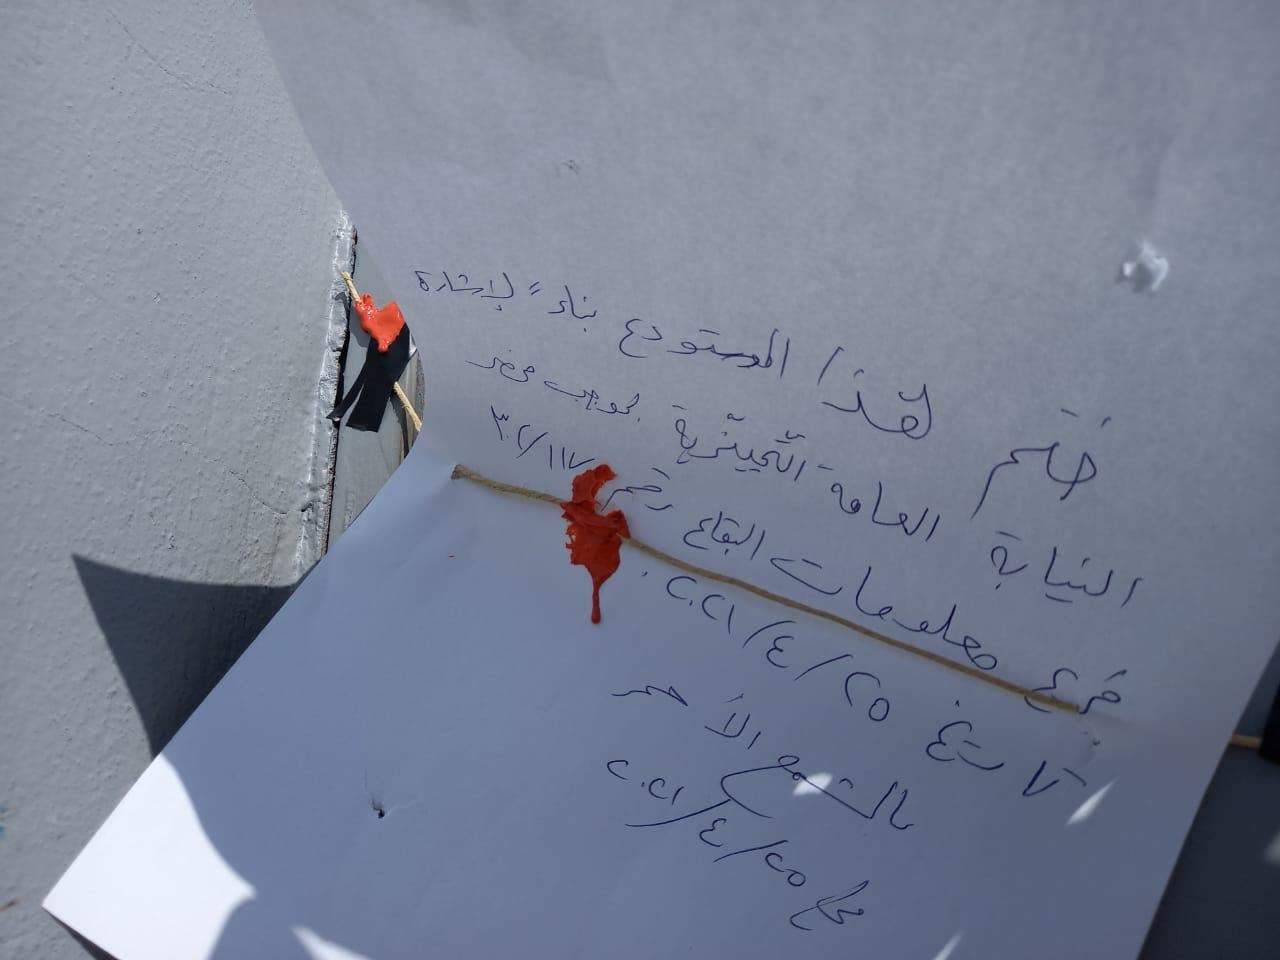 ختم هذا المستودع بناءً لإشارة
النيابة العامة التمييزية بموجب محضر
فرع معلومات البقاع رقم ٣٠٢/١١٧
تاريخ ٢٥/٤/٢٠٢١.
بالشمع الأحمر
٢٥/٤/٢٠٢١